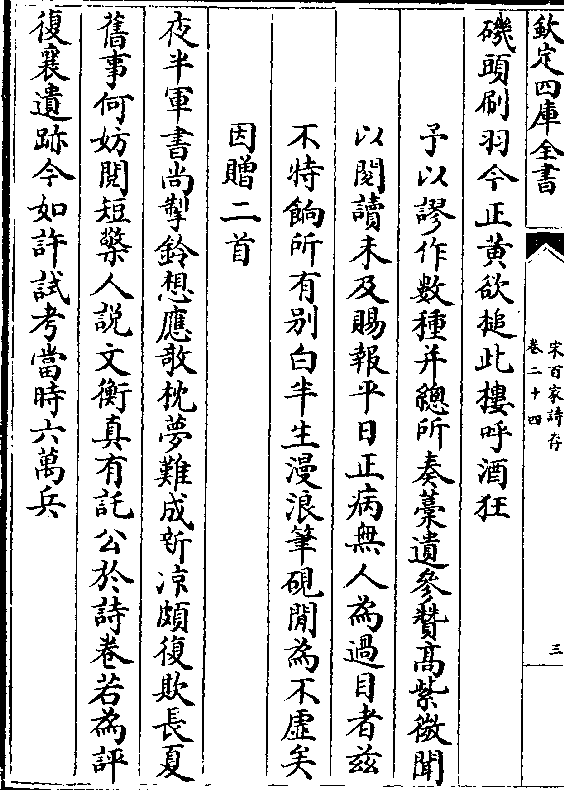 欽定四庫全書
宋百家詩存
卷二十四
三
磯頭刷羽今正黃欲搥此樓呼酒狂
予以謬作數種并總所奏藁遺參贊高紫微聞
以閱讀未及賜報平日正病無人為過目者兹
不特餉所有别白半生漫浪筆硯閒為不虚矣
因贈二首
夜半軍書尚掣鈴想應欹枕夢難成新凉頗復欺長夏
舊事何妨閱短檠人說文衡真有託公於詩卷若為評
復襄遺跡今如許試考當時六萬兵